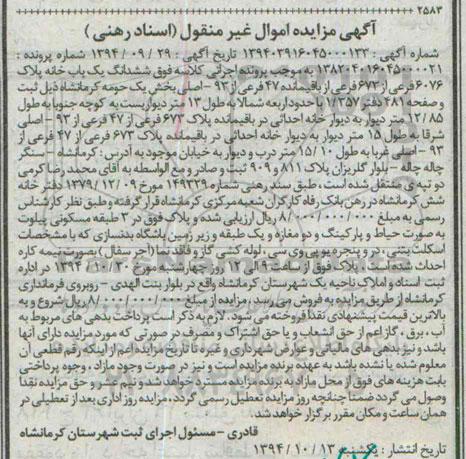 ۲۵۸۳
آگهی مزایده اموال غیر منقول (اسناد رهنی)
شماره آگهی : ۱۳۹۴۰۳۹۱۶۰۴۵۰۰۰۱۳۳ تاریخ آگهی : ۲۹ / ۰۹ / ۱۳۹۴ شماره پرونده :
۱۳۸۲۰۴۰۱۶۰۴۵۰۰۰۰۲۱ به موجب پرونده اجرائی کلاسه فوق ششدانگ یک باب خانه پلاک
۶۰۷۶ فرعی از ۶۷۳ فرعی از باقیمانده ۴۷ فرعی از ۹۳ - اصلی بخش یک حومه کرمانشاه ذیل ثبت
و صفحه ۴۸۱ دفتر ۱/۳۵۷ با حدود اربعه شمالا به طول ۱۳ متر دیواریست به کوچه جنوبا به طول
۱۲/۸۵ متر دیوار به دیوار خانه احداثی در باقیمانده پلاک ۶۷۳ فرعی از ۴۷ فرعی از ۹۳ - اصلی
شرقا به طول ۱۵ متر دیوار به دیوار خانه احداثی در باقیمانده پلاک ۶۷۳ فرعی از ۴۷ فرعی از
۹۳ - اصلی غربا به طول ۱۵/۱۰ متر درب و دیوار به خیابان موجود به آدرس : کرمانشاه - سنگر
چاله چاله - بلوار گلریزان پلاک ۸۱۱ و ۹۰۹ ثبت و صادر و مع الواسطه به آقای محمد رضا کرمی
دو تپه ی منتقل شده است، طبق سند رهنی شماره ۱۴۹۳۳۹ مورخ ۰۹ / ۱۲ / ۱۳۷۹ دفتر خانه
شش کرمانشاه در رهن بانک رفاه کارگران شعبه مرکزی کرمانشاه قرار گرفته و طبق نظر کارشناس
رسمی به مبلغ ۸/۰۰۰/۰۰۰/۰۰۰ ریال ارزیابی شده و پلاک فوق در ۳ طبقه مسکونی پیلوت
به صورت حیاط و پارکینگ و دو مغازه و یک طبقه و زیر زمین باشگاه بدنسازی که با مشخصات
اسکلت بتنی، در و پنجره یو پی وی سی، لوله کشی گاز و فاقد نما (آجر سفال) بصورت نیمه کاره
احداث شده است . پلاک فوق از ساعت ۹ الی ۱۲ روز چهارشنبه مورخ ۳۰ / ۱۰ / ۱۳۹۴ در اداره
ثبت اسناد و املاک ناحیه یک شهرستان کرمانشاه واقع در بلوار بنت الهدی - روبروی فرمانداری
کرمانشاه از طریق مزایده به فروش می رسد، مزایده از مبلغ ۸/۰۰۰/۰۰۰/۰۰۰ ریال شروع و به
بالاترین قیمت پیشنهادی نقدا فروخته می شود. لازم به ذکر است پرداخت بدهی های مربوط به
آب ، برق ، گاز اعم از حق انشعاب و یا حق اشتراک و مصرف در صورتی که مورد مزایده دارای آنها
باشد و نیز بدهی های مالیاتی و عوارض شهرداری و غیره تا تاریخ مزایده اعم از اینکه رقم قطعی آن
معلوم شده یا نشده باشد به عهده برنده مزایده است و نیز در صورت وجود مازاد ، وجوه پرداختی
بابت هزینه های فوق از محل مازاد به برنده مزایده مسترد خواهد شد و نیم عشر و حق مزایده نقدا
وصول می گردد ضمنا چنانچه روز مزایده تعطیل رسمی گردد، مزایده روز اداری بعد از تعطیلی در
همان ساعت و مکان مقرر برگزار خواهد شد.
قادری - مسئول اجرای ثبت شهرستان کرمانشاه
تاریخ انتشار : یکشنبه ۱۳ / ۱۰ / ۱۳۹۴